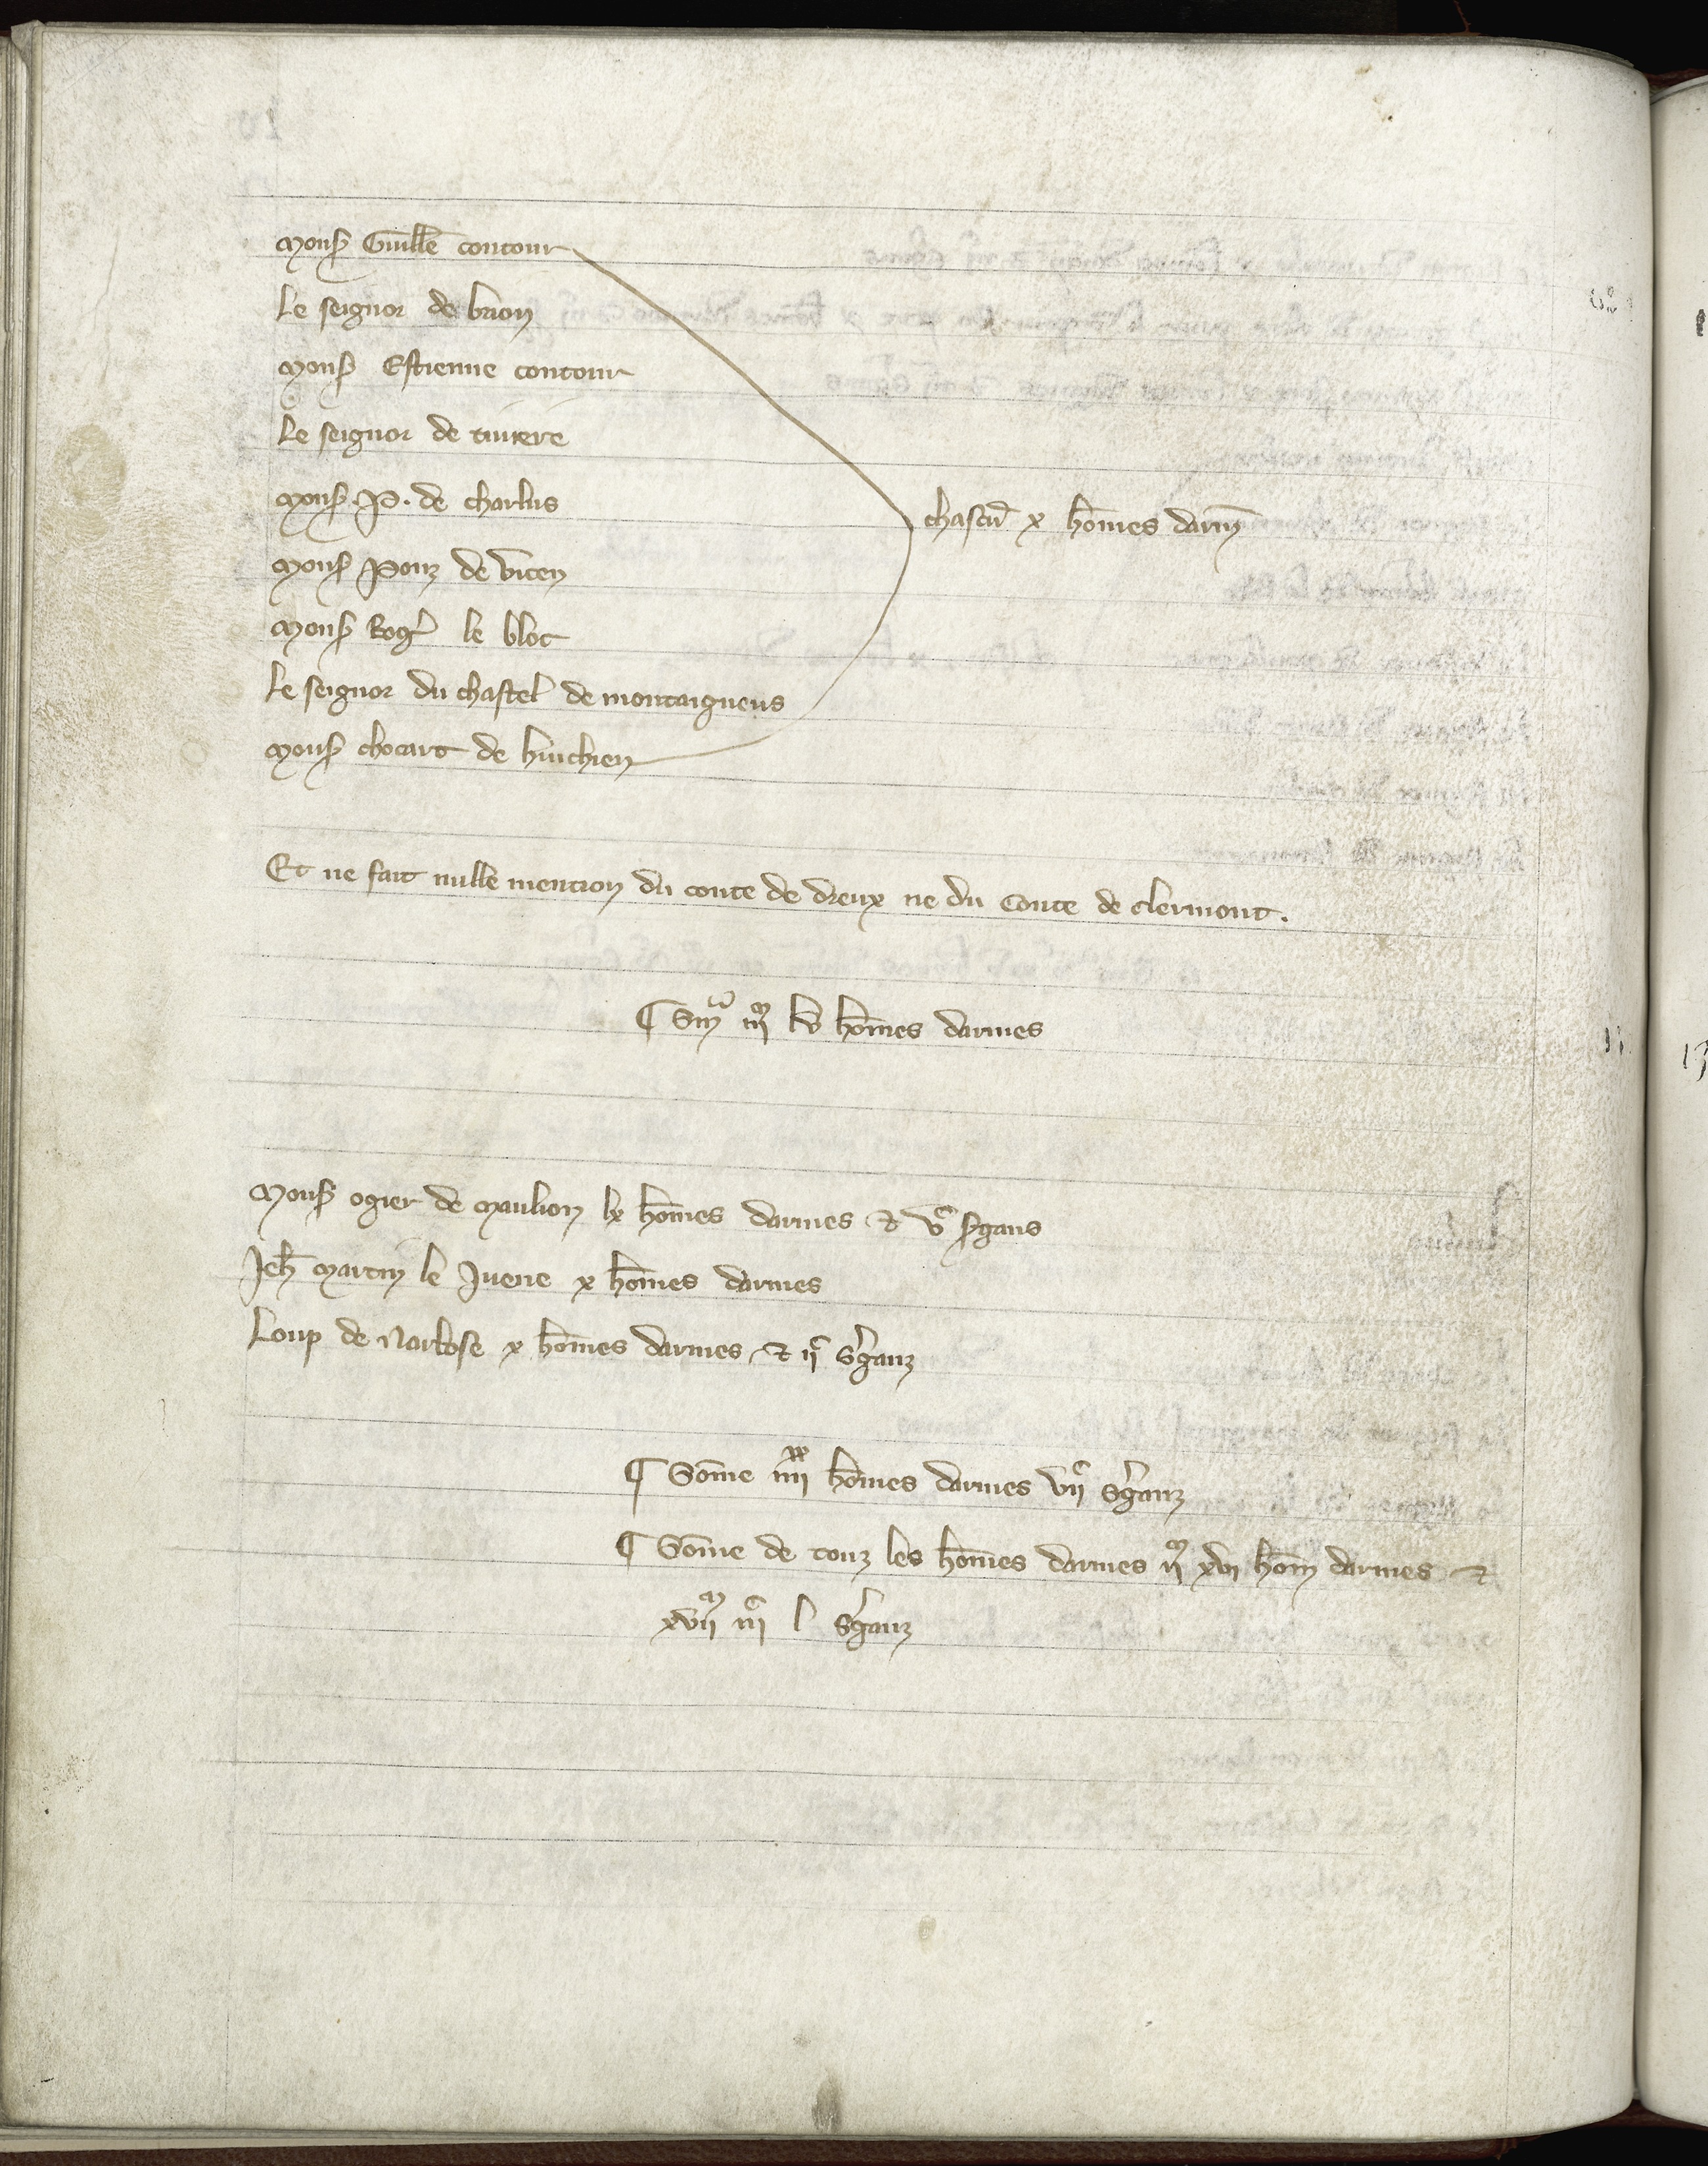 Mons Guille contour
Le seignor de brion
Mons Estienne contour
Le seignor de tiniere
Mons .P. de charlus
Mons Ponz de Vicen
Mons Rog le bloc
Le seignor du chastel de montaigneus
Mons chocart de huichien
chascu x homes darm
Et ne fait nulle mention du conte de dreux ne du Conte de clermont.
¶ Sma iiim lv homes darmes
Mons ogier de Maulion lx homes darmes et vc sgans
Jeh Martin le Juene x homes darmes
Loup de Narbose x homes darmes et iic sganz
¶ Some iiiixx homes darmes viic sganz
¶ Some de touz les homes darmes iim xvi hom darmes et
xviim iiic l sganz